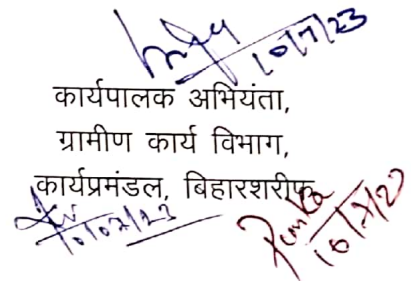 10/7/23
कार्यपालक अभियंता,
ग्रामीण कार्य विभाग,
कार्यप्रमंडल, बिहारशरीफ
10/07/23